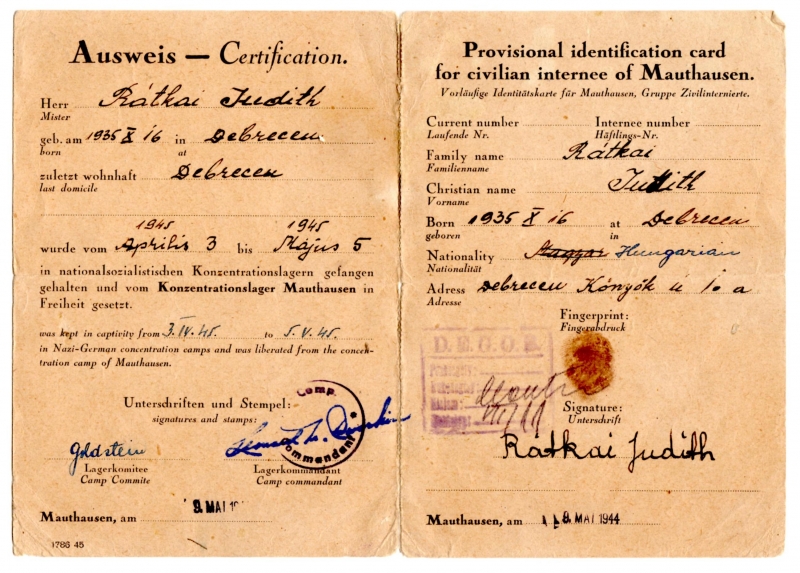 Ausweis — Certification.
Herr Rátkai Judith
Mister
geb. am 1935 X 16 in Debrecen
born at
zuletzt wohnhaft Debrecen
last domicile
1945 1945
wurde vom Április 3 bis Május 5
in nationalsozialistischen Konzentrationslagern gefangen
gehalten und vom Konzentrationslager Mauthausen in
Freiheit gesetzt.
was kept in captivity from 3.IV.45. to 5.V.45.
in Nazi-German concentration camps and was liberated from the concen-
tration camp of Mauthausen.
Unterschriften und Stempel:
signatures and stamps:
Comp.
Commandant
Goldstein
Lagerkomitee Lagerkommandant
Camp Commite Camp commandant
Mauthausen, am 9. MAI 19
1786 45
Provisional identification card
for civilian internee of Mauthausen.
Vorläufige Identitätskarte für Mauthausen, Gruppe Zivilinternierte.
Current number Internee number
Laufende Nr. Häftlings-Nr.
Family name Rátkai
Familienname
Christian name Judith
Vorname
Born 1935 X 16 at Debrecen
geboren in
Nationality Magyar Hungarian
Nationalität
Adress Debrecen Könyök u 10 a
Adresse
Fingerprint:
Fingerabdruck
D.E.G.O.B.
Signature:
Unterschrift
Rátkai Judith
Mauthausen, am 9. MAI 1944